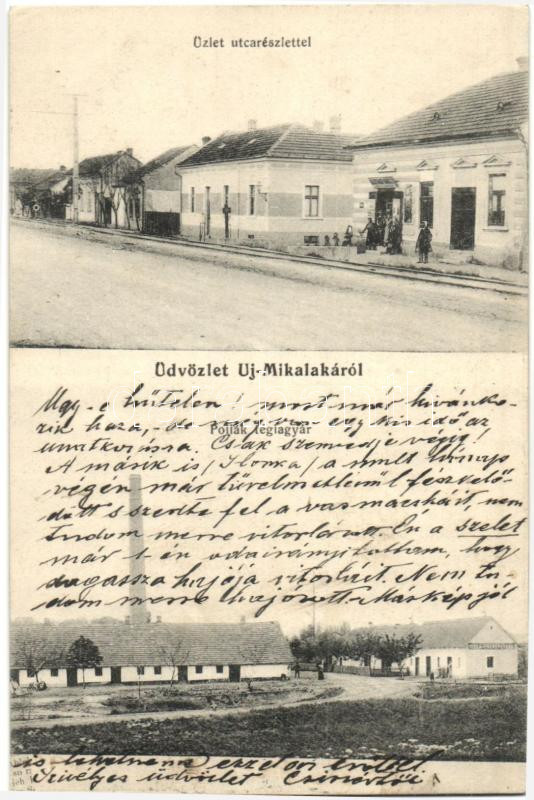 Üzlet utcarészlettel
Üdvözlet Uj-Mikalakáról
Pollák téglagyár
Ugy-e hűtelen! most már kivánko-
zik haza, de van egy kis idő az
unatkozásra. Csak szenvedje végig!
A másik is /Ilonka/ a mult hónap
végén már türelmetlenül fészkelő-
dött s szedte fel a vasmacskáit, nem
tudom merre vitorlázott. Én a szelet
már 1-én odairányítottam, hogy
dagassza hajója vitorláit. Nem tu-
dom merre hajózott. Másképp jól
is lehetne ezzel
Szivélyes üdvözlet